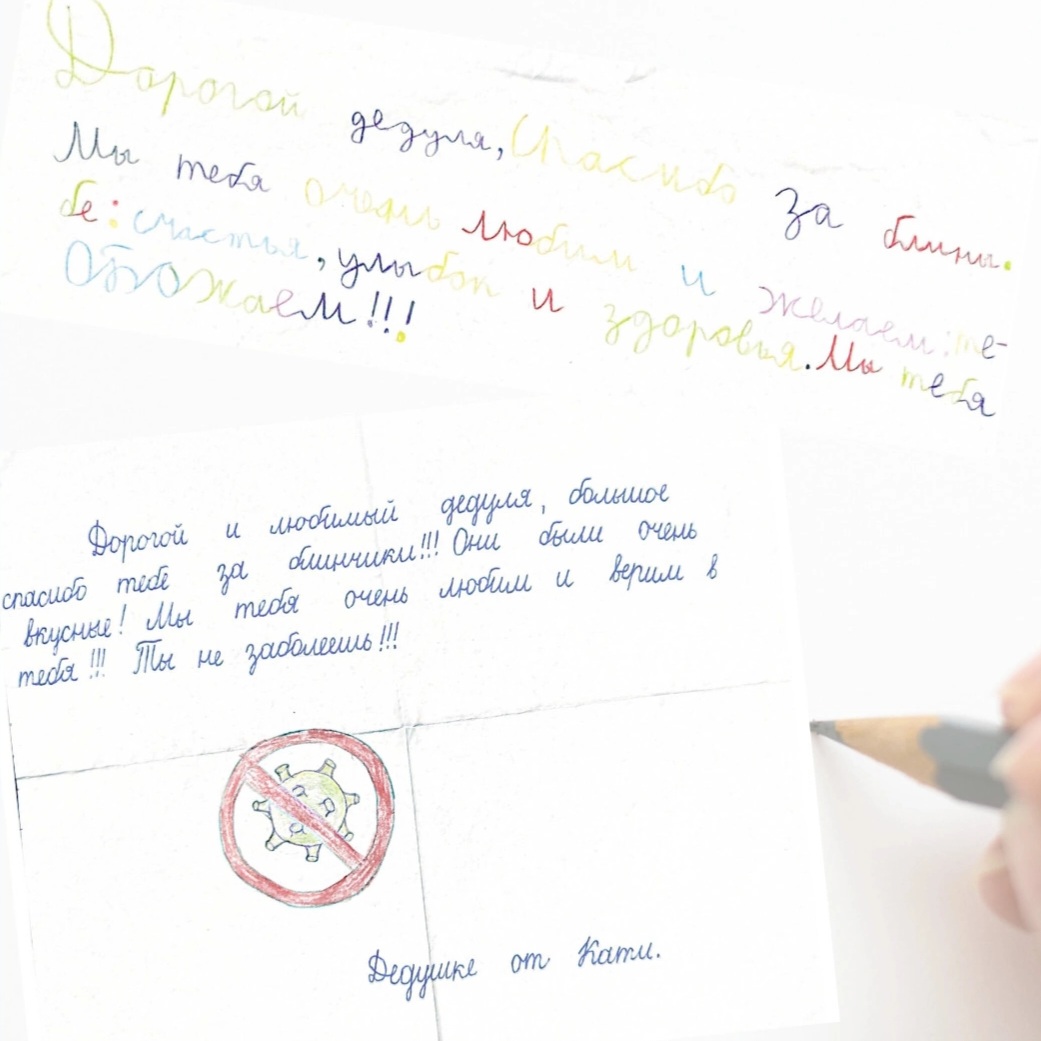 Дорогой дедуля, Спасибо за блины.
Мы тебя очень любим и желаем: те-
бе: счастья, улыбок и здоровья. Мы тебя
Обожаем!!!
Дорогой и любимый дедуля, большое
спасибо тебе за блинчики!!! Они были очень
вкусные! Мы тебя очень любим и верим в
тебя!!! Ты не заболеешь!!!
Дедушке от Кати.